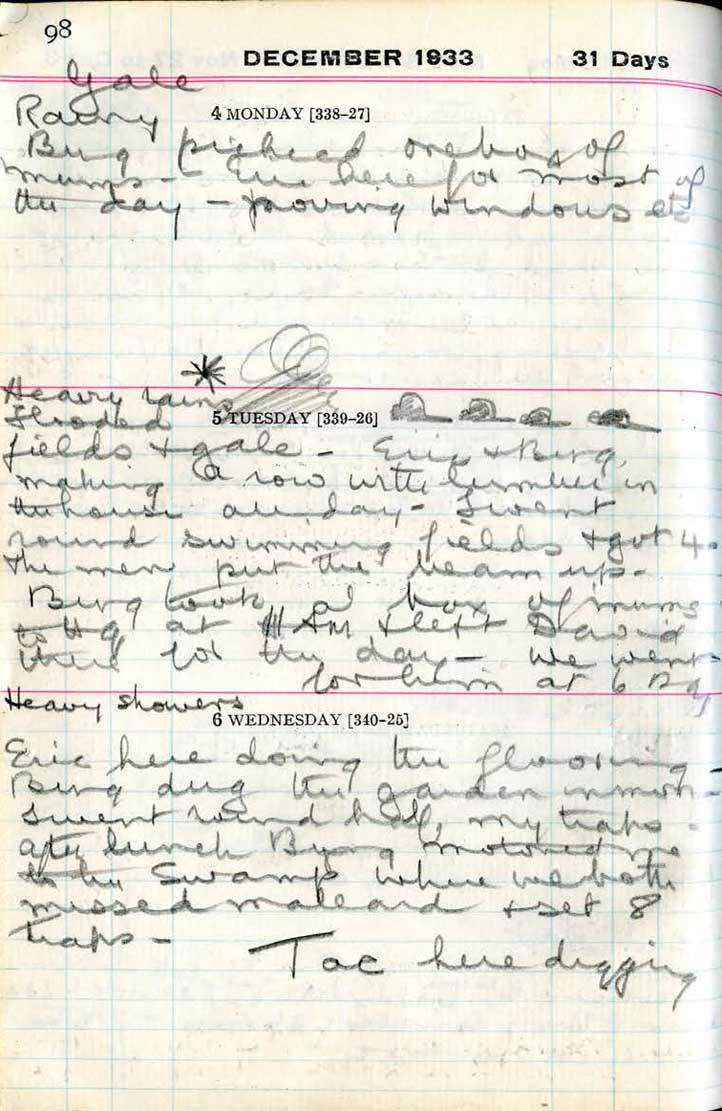 98
DECEMBER 1933 31 Days
Gale
Rainy 4 MONDAY [338–27]
Bung picked one box of
mums - Eric here for most of
the day - moving windows etc
Heavy rains
flooded 5 TUESDAY [339–26]
fields + gale - Eric + Bung
making a row with lumber in
the house all day - I went
round swimming fields + got 4 -
the men put the beam up -
Bung took a box of mums
to Hq at 11 AM + left David
there for the day - we went
for him at 6
Heavy showers
6 WEDNESDAY [340–25]
Eric here doing the flooring -
Bung dug the garden in morn -
I went round half my traps -
after lunch Bung motored me
to the Swamp where we both
missed mallard + set 8
traps -
Tac here digging